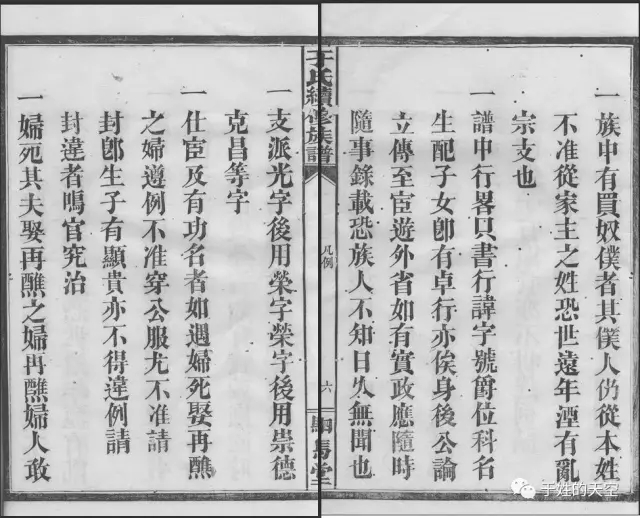 一族中有買奴僕者其僕人仍從本姓
不准從家主之姓恐世遠年湮有亂
宗支也
一譜中行畧只書行諱字號爵位科名
生配子女卽有卓行亦俟身後公論
立傳至宦遊外省如有實政應隨時
隨事錄載恐族人不知日久無聞也
于氏續修族譜
凡例
六
駟馬堂
一支派光字後用榮字榮字後用崇德
克昌等字
一仕宦及有功名者如遇婦死娶再醮
之婦遵例不准穿公服尤不准請
封卽生子有顯貴亦不得違例請
封違者鳴官究治
一婦死其夫娶再醮之婦再醮婦人敢
于姓的天空